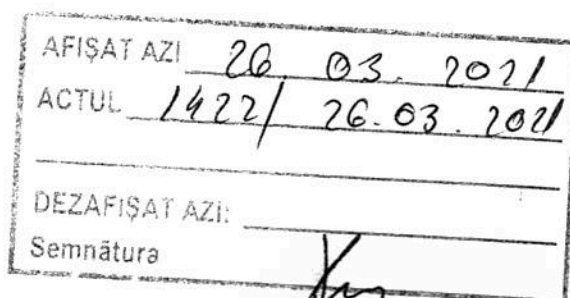 AFIȘAT AZI 26. 03. 2021
ACTUL 1422/ 26.03.2021
DEZAFIȘAT AZI:
Semnătura